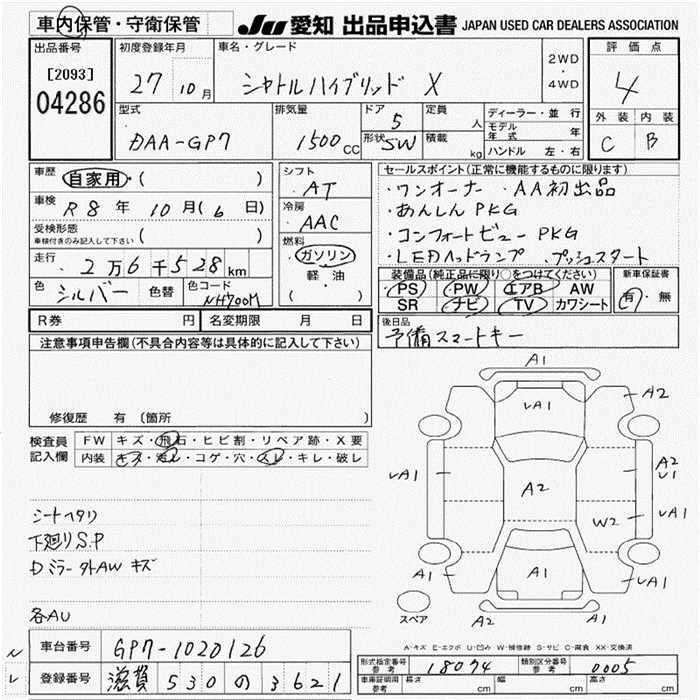 車内保管・守衛保管
JU 愛知 出品申込書 JAPAN USED CAR DEALERS ASSOCIATION
出品番号
[2093]
04286
初度登録年月
27 10月
車名・グレード
シャトルハイブリッド X
2WD
・
4WD
評価点
4
型式
DAA-GP7
排気量
1500CC
ドア
5
形状 SW
定員
人
積載
kg
ディーラー・並行
モデル年式 年
ハンドル 左・右
外装 内装
C B
車歴 自家用・( )
車検 R8年 10月(6日)
受検形態
車検付きのみ記入して下さい ( )
走行 2万6千528km
色 シルバー 色替 色コード NH700M
シフト
AT
冷房
AAC
燃料
ガソリン
軽・油
( )
セールスポイント(正常に機能するものに限ります)
・ワンオーナー ・AA初出品
・あんしんPKG
・コンフォートビューPKG
・LEDヘッドランプ プッシュスタート
装備品(純正品に限り○をつけてください)
PS・PW・エアB・AW
SR ナビ・TV・カワシート
新車保証書
有・無
R券 円 名変期限 月 日
後日品
予備スマートキー
注意事項申告欄(不具合内容等は具体的に記入して下さい)
修復歴 有 (箇所 )
検査員
記入欄
FW キズ・飛石・ヒビ割・リペア跡・X要
内装 キズ・汚レ・コゲ・穴・スレ・キレ・破レ
シートヘタリ
下廻りS.P
Dミラー外AW キズ
各AU
A1
UA1
A2
UA1
A2
U1
A2
W2
UA1
A1
A1
UA1
スペア
A2
A1
A-キズ E-エクボ U-凹み W-補修跡 S-サビ C-腐食 XX-交換済
車台番号 GP7-1020126
登録番号 滋賀 530 の 3621
形式指定番号
参考
18074
類別区分番号
参考
0005
車庫証明用
参考
長さ cm 幅 cm 高さ cm